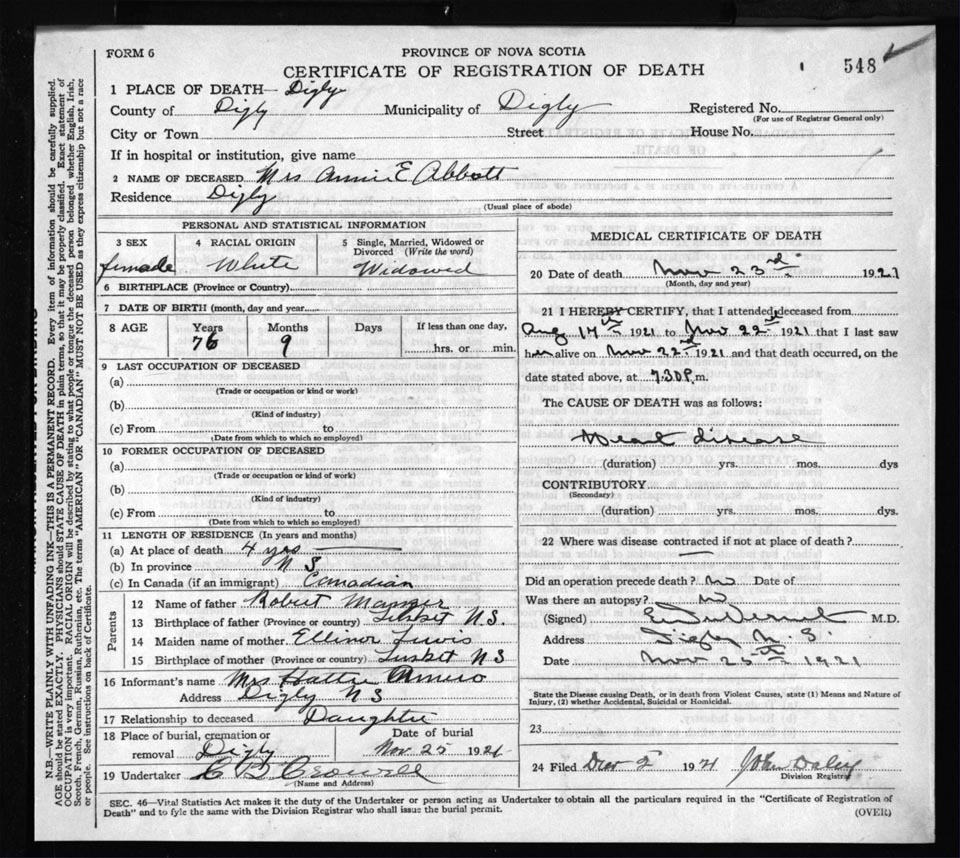 FORM 6
PROVINCE OF NOVA SCOTIA
CERTIFICATE OF REGISTRATION OF DEATH
548
1 PLACE OF DEATH— Digby
County of Digby Municipality of Digby Registered No.
(For use of Registrar General only)
City or Town Street House No.
If in hospital or institution, give name
2 NAME OF DECEASED Mrs Annie E Abbott
Residence Digby
(Usual place of abode)
PERSONAL AND STATISTICAL INFORMATION
3 SEX
female
4 RACIAL ORIGIN
White
5 Single, Married, Widowed or Divorced (Write the word)
Widowed
6 BIRTHPLACE (Province or Country)
7 DATE OF BIRTH (month, day and year)
8 AGE Years Months Days If less than one day,
76 9 hrs. or min.
9 LAST OCCUPATION OF DECEASED
(a)
(Trade or occupation or kind or work)
(b)
(Kind of industry)
(c) From to
(Date from which to which so employed)
10 FORMER OCCUPATION OF DECEASED
(a)
(Trade or occupation or kind of work)
(b)
(Kind of industry)
(c) From to
(Date from which to which so employed)
11 LENGTH OF RESIDENCE (In years and months)
(a) At place of death 4 yrs
(b) In province N S
(c) In Canada (if an immigrant) Canadian
Parents
12 Name of father Robert
13 Birthplace of father (Province or country) N.S.
14 Maiden name of mother Ellinor Lewis
15 Birthplace of mother (Province or country) Tusket N S
16 Informant's name Mrs Hattie
Address Digby N S
17 Relationship to deceased Daughter
18 Place of burial, cremation or removal Digby
Date of burial
Nov 25 1921
19 Undertaker Crowell
(Name and Address)
MEDICAL CERTIFICATE OF DEATH
20 Date of death Nov 23rd 1921
(Month, day and year)
21 I HEREBY CERTIFY, that I attended deceased from
Aug 17th 1921 to Nov 22nd 1921 that I last saw
her alive on Nov 22nd 1921 and that death occurred, on the
date stated above, at 7.30 P.m.
The CAUSE OF DEATH was as follows:
Heart disease
(duration) yrs. mos. dys
CONTRIBUTORY
(Secondary)
(duration) yrs. mos. dys.
22 Where was disease contracted if not at place of death?
Did an operation precede death? No Date of
Was there an autopsy? No
(Signed) M.D.
Address Digby N. S.
Date Nov 25th 1921
State the Disease causing Death, or in death from Violent Causes, state (1) Means and Nature of
Injury, (2) whether Accidental, Suicidal or Homicidal.
23
24 Filed Dec 2 1921 John Daley
Division Registrar
SEC. 46—Vital Statistics Act makes it the duty of the Undertaker or person acting as Undertaker to obtain all the particulars required in the "Certificate of Registration of
Death" and to fyle the same with the Division Registrar who shall issue the burial permit.
(OVER)
N.B.—WRITE PLAINLY WITH UNFADING INK—THIS IS A PERMANENT RECORD. Every item of information should be carefully supplied.
AGE should be stated EXACTLY. PHYSICIANS should STATE CAUSE OF DEATH in plain terms, so that it may be properly classified. Exact statement of
OCCUPATION is very important. RACIAL ORIGIN will be described by stating to what people or tongue the deceased person belonged whether English, Irish,
Scotch, French, German, Russian, Ruthenian, etc. The terms "AMERICAN" OR "CANADIAN" MUST NOT BE USED as they express citizenship but not a race
or people. See instructions on back of Certificate.